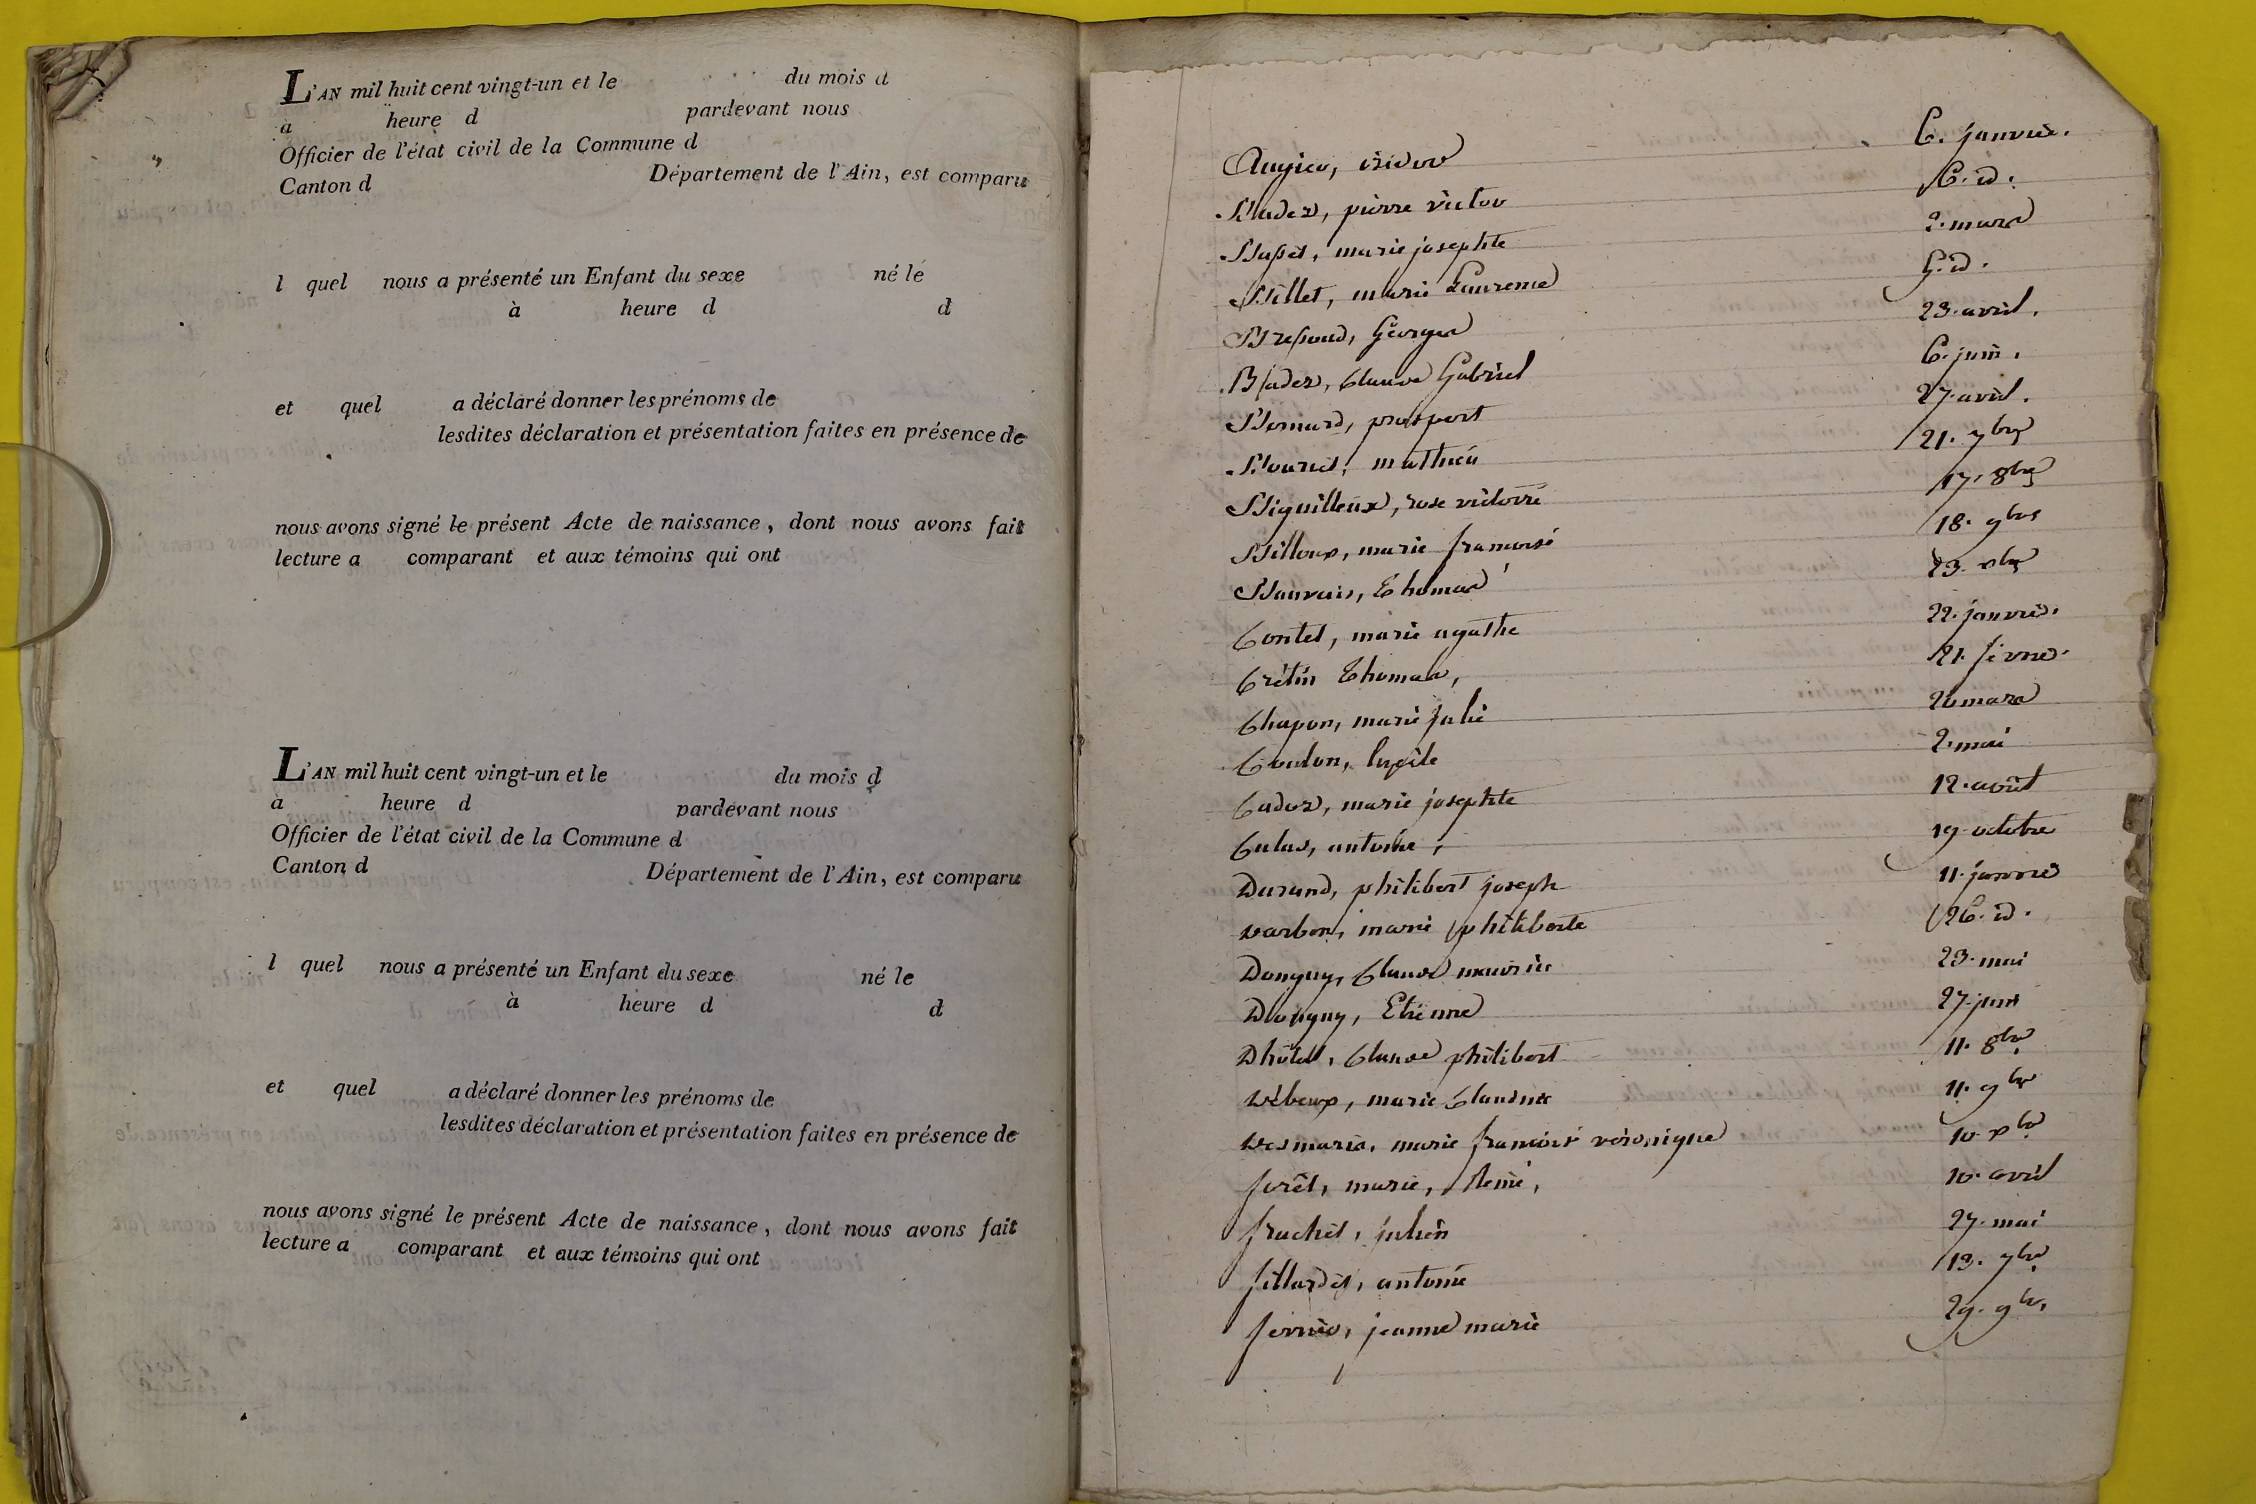 L'AN mil huit cent vingt-un et le du mois d
à heure d pardevant nous
Officier de l'état civil de la Commune d
Canton d Département de l'Ain, est comparu
l quel nous a présenté un Enfant du sexe né le
à heure d d
et quel a déclaré donner les prénoms de
lesdites déclaration et présentation faites en présence de
nous avons signé le présent Acte de naissance, dont nous avons fait
lecture a comparant et aux témoins qui ont
L'AN mil huit cent vingt-un et le du mois d
à heure d pardevant nous
Officier de l'état civil de la Commune d
Canton d Département de l'Ain, est comparu
l quel nous a présenté un Enfant du sexe né le
à heure d d
et quel a déclaré donner les prénoms de
lesdites déclaration et présentation faites en présence de
nous avons signé le présent Acte de naissance, dont nous avons fait
lecture a comparant et aux témoins qui ont
isidore 6. janvier.
pierre victor 6. id.
marie josephte 2. mars
Billet, marie Laurence 5. id.
Georges 23. avril.
Claude Gabriel 6. juin.
Bernard, prospert 27. avril.
Bouvret, mathieu 21. 7bre
Biguilleux, rose victoire 17. 8bre
Billoux, marie francoise 18. 9bre
Bauvais, Thomas 23. xbre
Contet, marie agathe 22. janvier.
Crétin Thomas, 21. février.
Chapon, marie julie 20 mars
Coulon, lupile 2. mai
Cadoz, marie josephte 12. août
Calas, antoine, 19. octobre
Durand, philibert joseph 11. janvier
Darbon, marie philiberte 26. id.
Donguy, Claude maurice 23. mai
Donguy, Etienne 27. juin
Dhôtel, Claude philibert 11. 8bre
Débeux, marie Claudine 11. 9bre
Desmaris, marie francoise véronique 10. xbre
forêt, marie, Reine, 10. avril
fruchet, julien 27. mai
fillardet, antoine 13. 7bre
ferrier, jeanne marie 29. 9bre